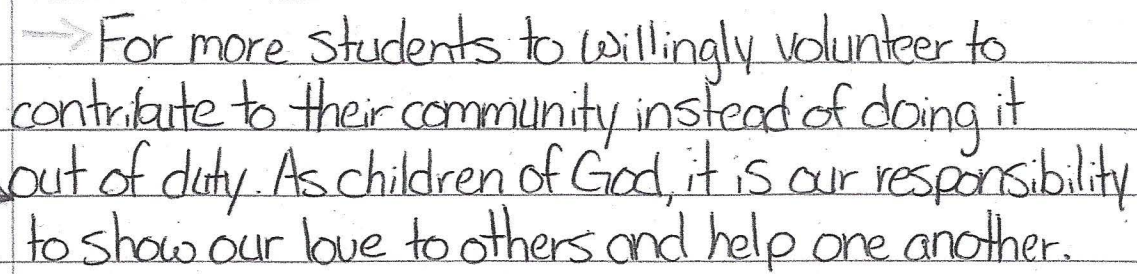 → For more students to willingly volunteer to
contribute to their community instead of doing it
out of duty. As children of God, it is our responsibility
to show our love to others and help one another.